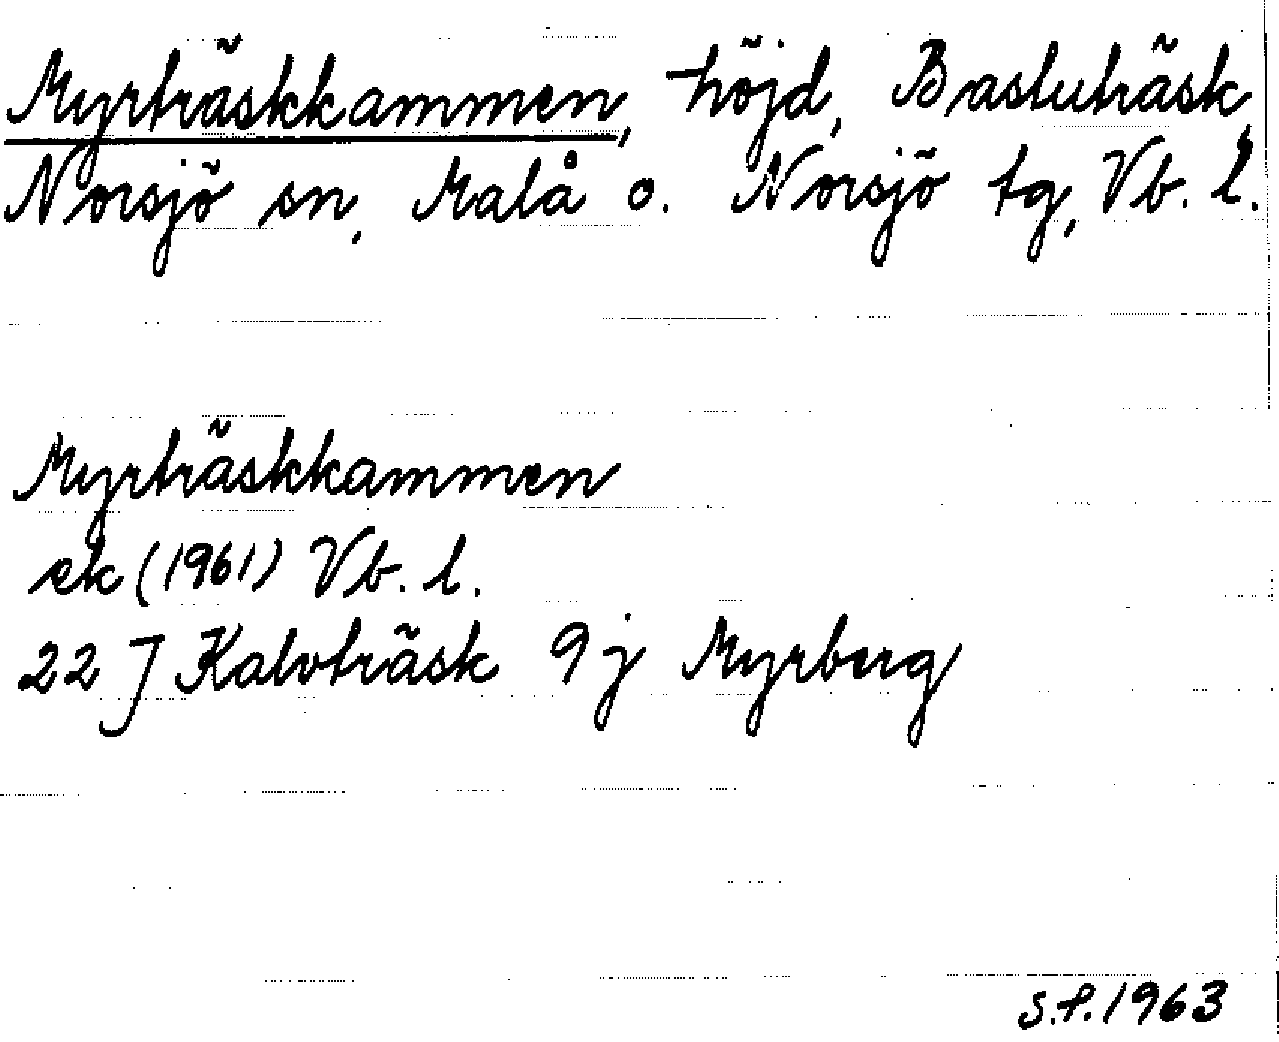 Myrträskkammen, höjd, Bastuträsk,
Norsjö sn, Malå o. Norsjö tg, Vb. l.
Myrträskkammen
ek (1961) Vb. l.
22 J Kalvträsk 9 j Myrberg
S.P. 1963